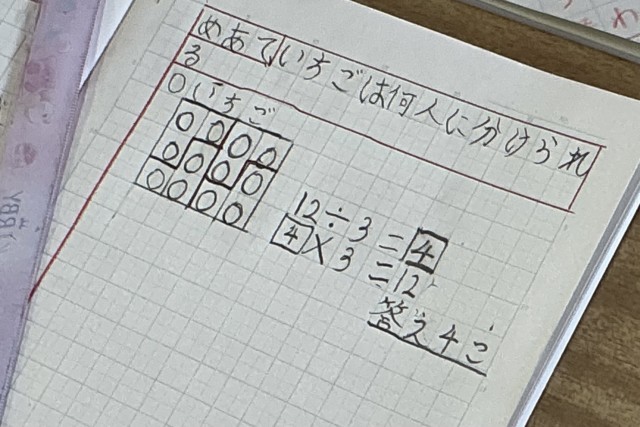 めあて いちごは何人に分けられ
る
○いちご
12÷3=4
4×3=12
答え4こ